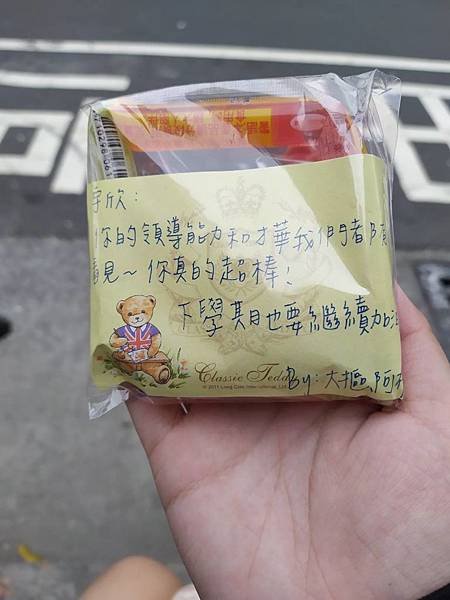 宇欣：
你的領導能力和才華我們都有
看見～你真的超棒！
下學期也要繼續加油
Classic Teddy
© 2011 Long Color International, Ltd.
By：大樞、阿